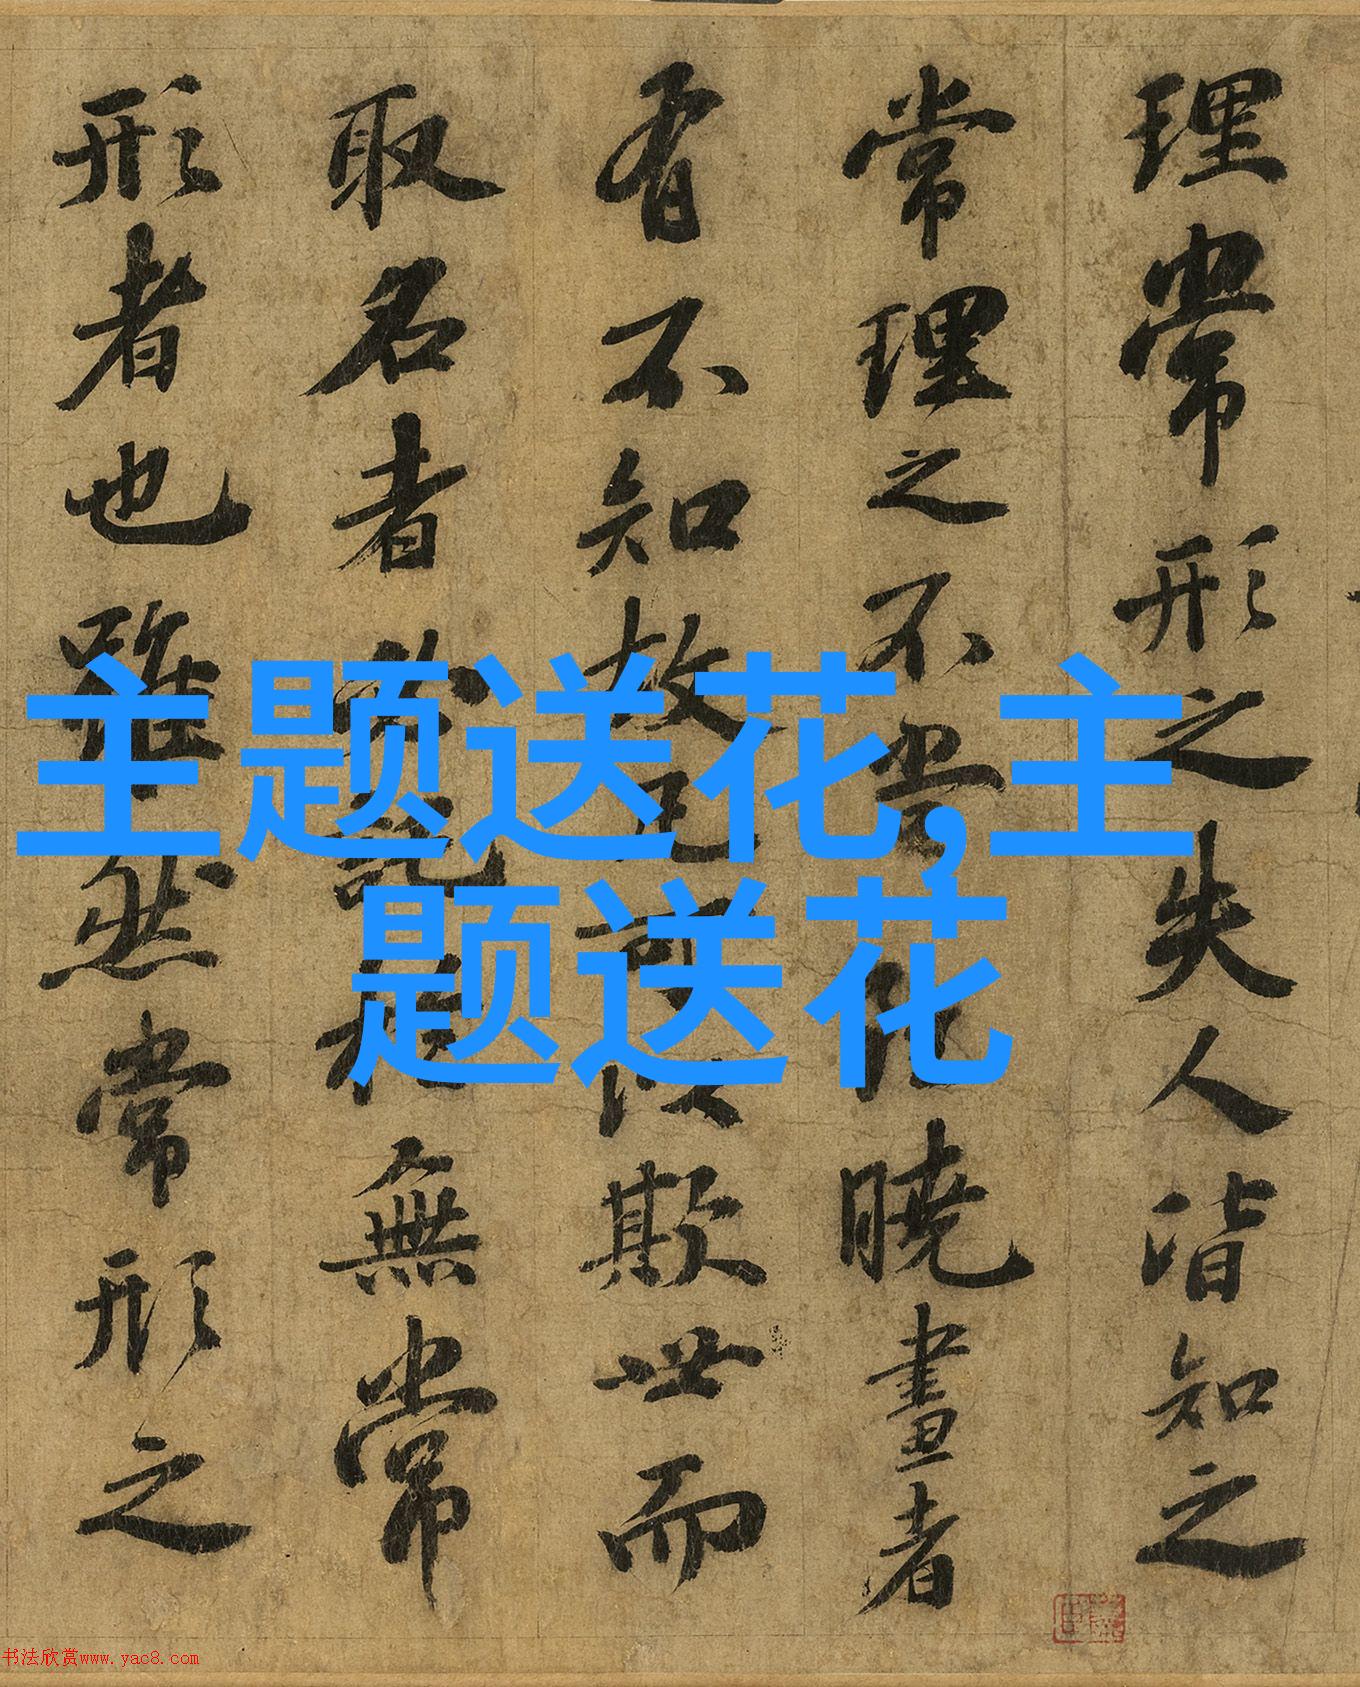 理常形之失人皆知之
常理之不當曉畫者
有不知故凡可以欺世而
取名者必託於無常
形者也雖然常形之
主题送花,主
题送花
书法欣赏www.yac8.com